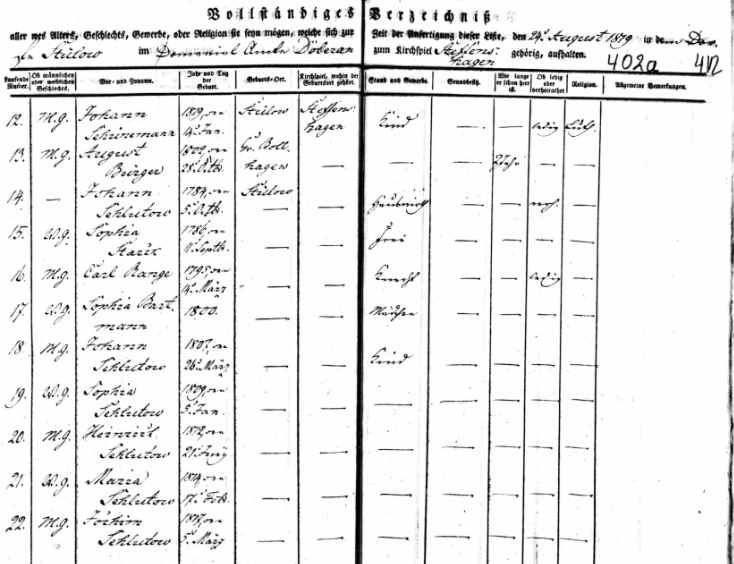 Vollständiges Verzeichniß
aller wes Alters, Geschlechts, Gewerbe, oder Religion sie seyn mögen, welche sich zur Zeit der Anfertigung dieser Liste, den 24. August 1819 in dem
Stülow im Domanial Amte Doberan zum Kirchspiel Steffenshagen gehörig, aufhalten.
402a 412
Laufende Nummer. Ob männlichen oder weiblichen Geschlechts. Vor- und Zuname. Jahr und Tag der Geburt. Geburts-Ort. Kirchspiel, wohin der Geburtsort gehört. Stand und Gewerbe. Grundbesitz. Wie lange er schon hier ist. Ob ledig oder verheirathet. Religion. Allgemeine Bemerkungen.
12. M.g. Johann 1819, Stülow Steffenshagen Kind — — ledig Luth.
14. Jan.
13. M.g. August 1802, Gr. Boll-
Burger 28. Octb. hagen — — — — —
14. — Johann 1784, Stülow
Schlutow 5. Octb. — — — — —
15. W.g. Sophia 1786, Frei
Starck 11. Septb. — — — — — —
16. M.g. Carl Range 1795, Knecht — — ledig —
14. März — —
17. W.g. Sophia Bart- 1800. Mädchen
mann — — — — — —
18. M.g. Johann 1807, Kind
Schlutow 26. März — — — — — —
19. W.g. Sophia 1809,
Schlutow 5. Jan. — — — — — — —
20. M.g. Heinrich 1812,
Schlutow — — — — — — —
21. W.g. Maria 1814,
Schlutow 17. Feb. — — — — — — —
22. M.g. Jochim 1817,
Schlutow 5. März — — — — — — —